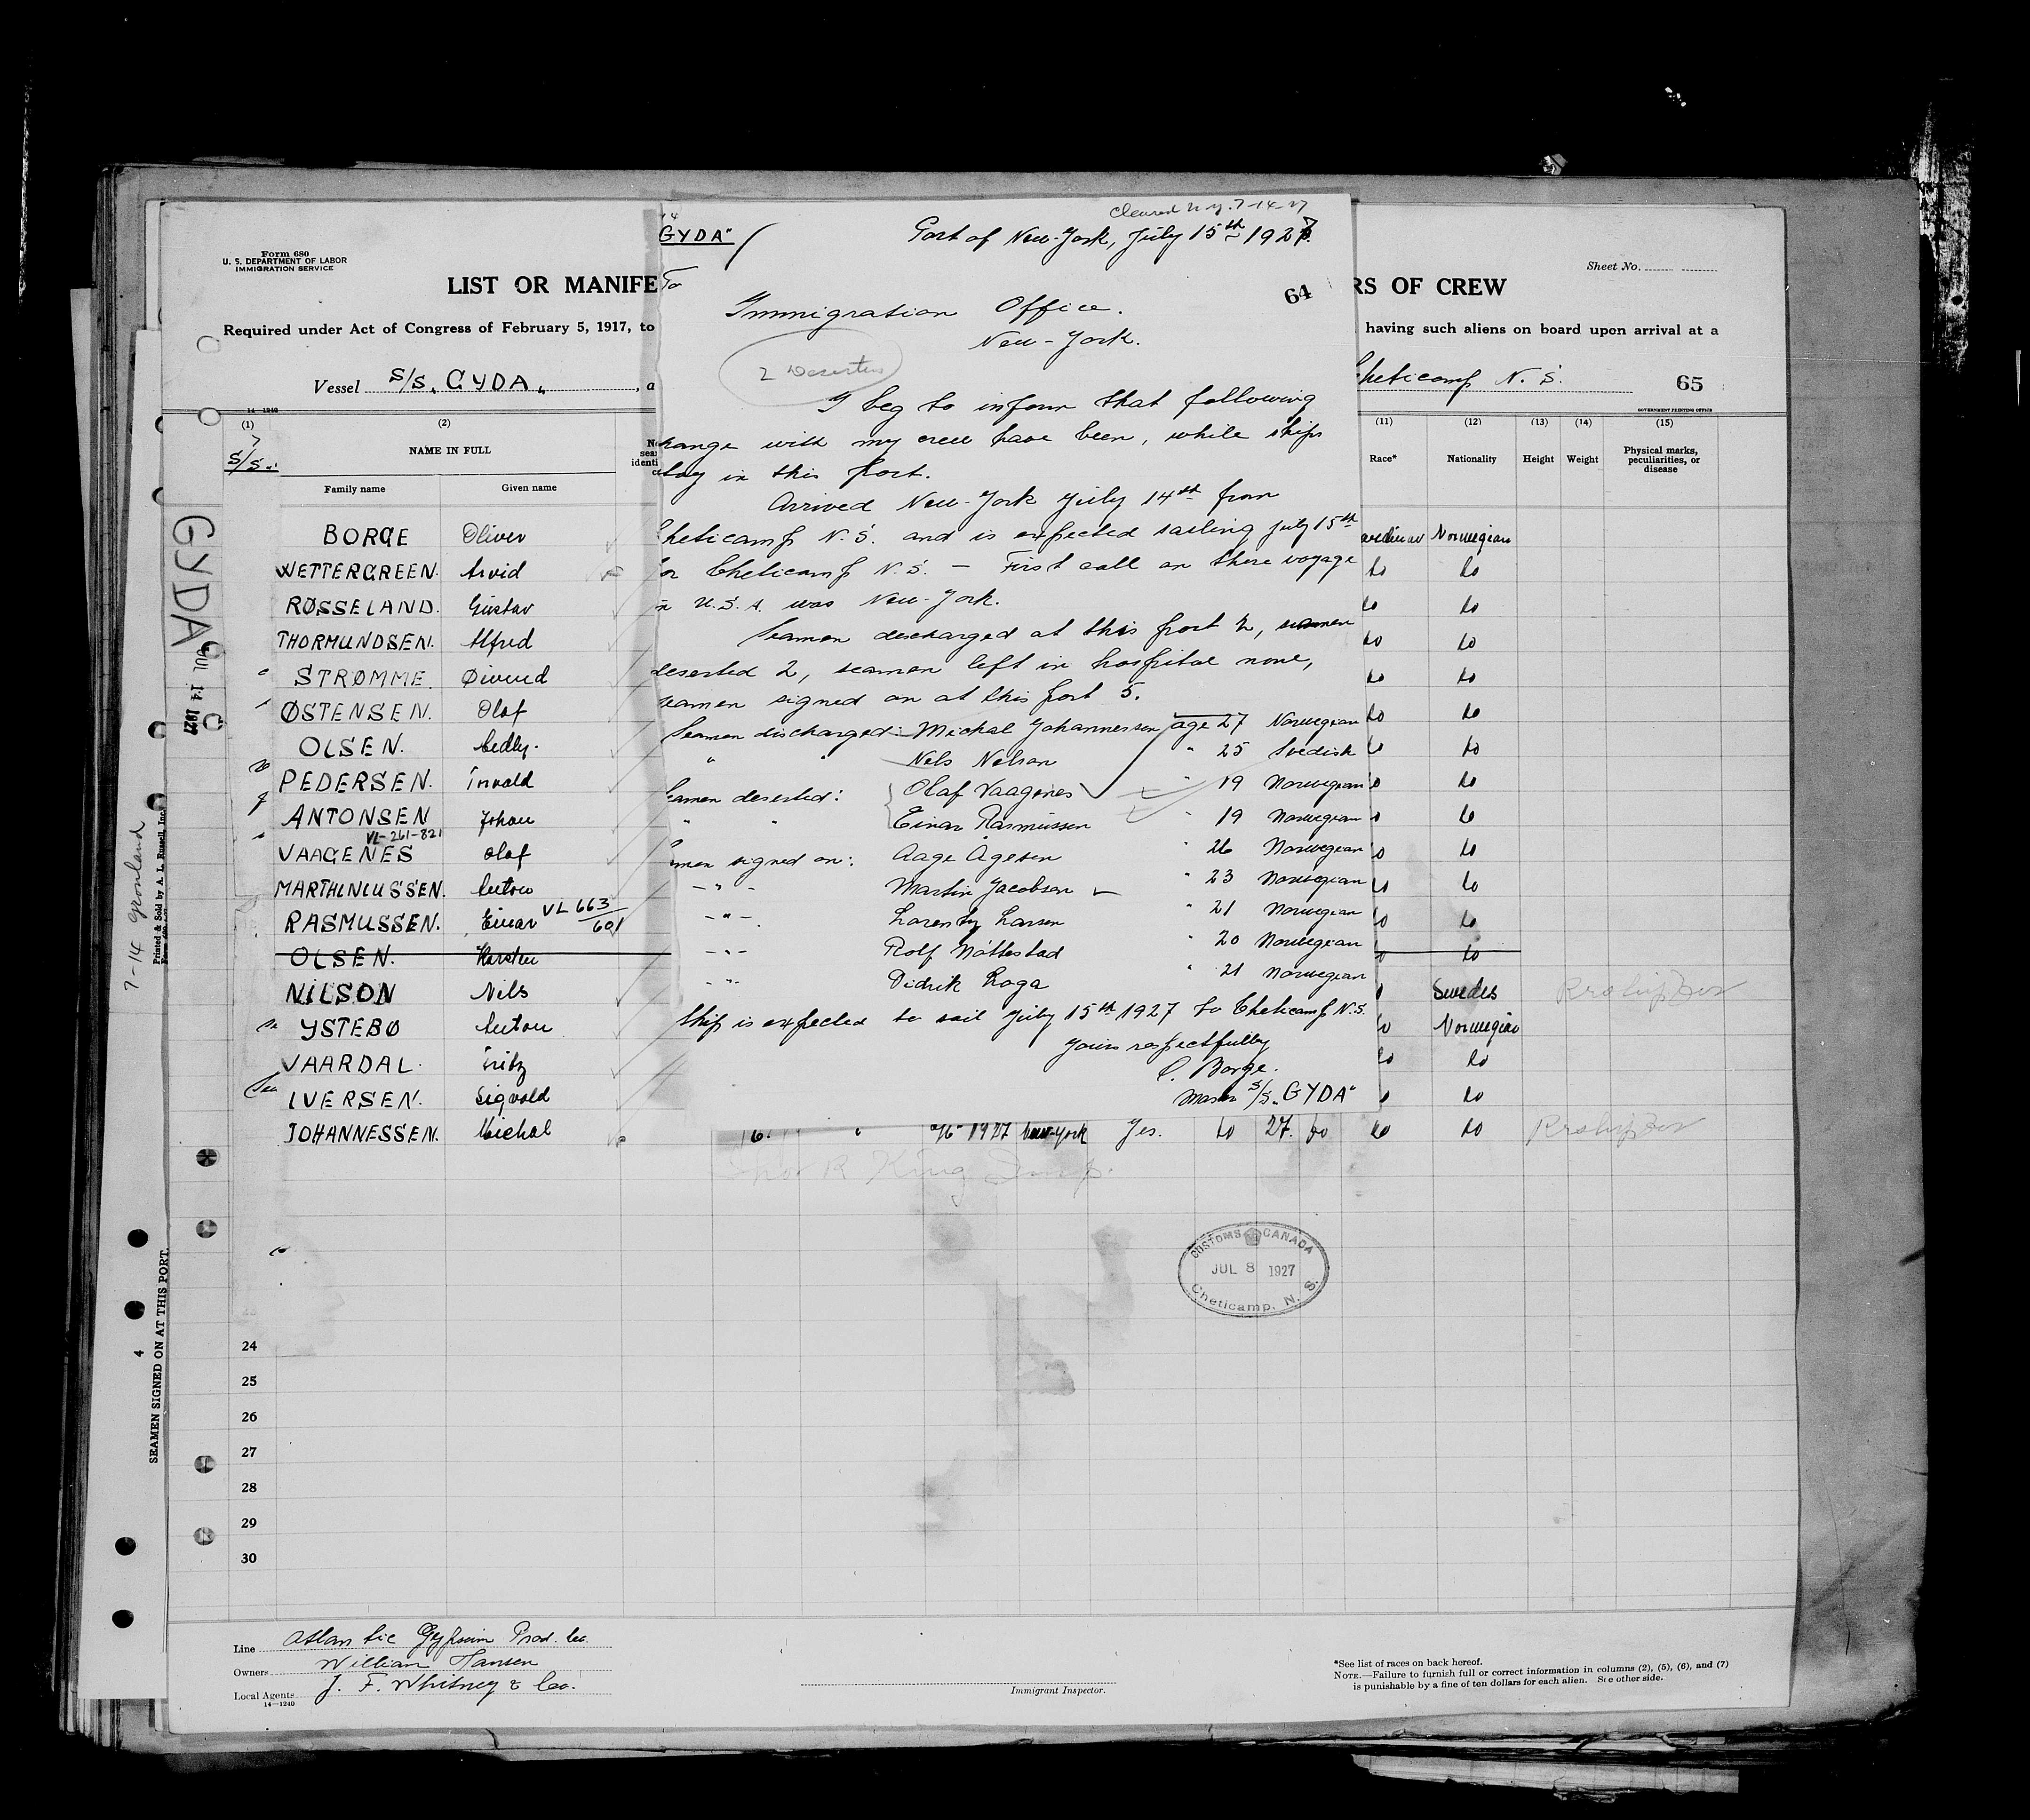 Form 680
U. S. DEPARTMENT OF LABOR
IMMIGRATION SERVICE
LIST OR MANIFE
Required under Act of Congress of February 5, 1917, to
Vessel S/S „GYDA„ , a
14—1240
(1)
(2)
S/S.
NAME IN FULL
Family name Given name
BORGE Oliver
WETTERGREEN. Arvid
RØSSELAND. Gustav
THORMUNDSEN. Alfred
STRØMME. Øivind
ØSTENSEN. Olaf
OLSEN.
PEDERSEN.
ANTONSEN Johan
VL-261-821
VAAGENES Olaf
MARTHINIUSSEN. Anton
RASMUSSEN. Einar VL 663/601
OLSEN. Karsten
NILSON Nils
YSTEBØ Anton
VAARDAL. Fritz
IVERSEN. Sigvald
JOHANNESSEN. Michal
6. " 1927 New-York Yes. do 27. do do do
Cleared N.Y. 7-14-27
GYDA"
Port of New-York, July 15th 1927.
To
64
Immigration Office.
New-York.
2 Deserters
I beg to inform that following
hange with my crew have been, while ships
lay in this port.
Arrived New-York July 14th from
heticamp N.S. and is expected sailing July 15th
or Cheticamp N.S. – First call on there voyage
in U.S.A. was New-York.
Seamen descharged at this port 2, seamen
deserted 2, seamen left in hospital none,
seamen signed on at this port 5.
Seamen discharged: Michal Johannessen age 27 Norwegian
" " Nels Nelson " 25 Svedish
eamen deserted: Olaf Vaagenes " 19 Norwegian
" " Einar Rasmussen " 19 Norwegian
men signed on: Aage Ågesen " 26 Norwegian
– " – Martin Jacobsen " 23 Norwegian
– " – Lorentz Larsen " 21 Norwegian
– " – Rolf Nöttestad " 20 Norwegian
– " – Didrik Loga " 21 Norwegian
Ship is expected to sail July 15th 1927 to Cheticamp N.S.
Yours respectfully
O. Borge.
Master S/S. „GYDA"
Sheet No.
RS OF CREW
having such aliens on board upon arrival at a
Cheticamp N. S.
65
GOVERNMENT PRINTING OFFICE
(11) (12) (13) (14) (15)
Race* Nationality Height Weight Physical marks, peculiarities, or disease
Norwegian
do do
do do
do do
do do
do do
do do
do do
do do
do do
do do
do do
do do
Swedes
do Norwegian
do do
do do
Thor R King Insp.
CUSTOMS CANADA
JUL 8 1927
Cheticamp, N. S.
24
25
26
27
28
29
30
Line Atlantic Gypsum Prod. Co.
Owners William Hansen
Local Agents J. F. Whitney & Co.
14—1240
Immigrant Inspector.
*See list of races on back hereof.
NOTE.—Failure to furnish full or correct information in columns (2), (5), (6), and (7)
is punishable by a fine of ten dollars for each alien. See other side.
GYDA
JUL 14 1927
7-14 Gronland
Printed & Sold by A. L. Russell, Inc.
SEAMEN SIGNED ON AT THIS PORT. 4